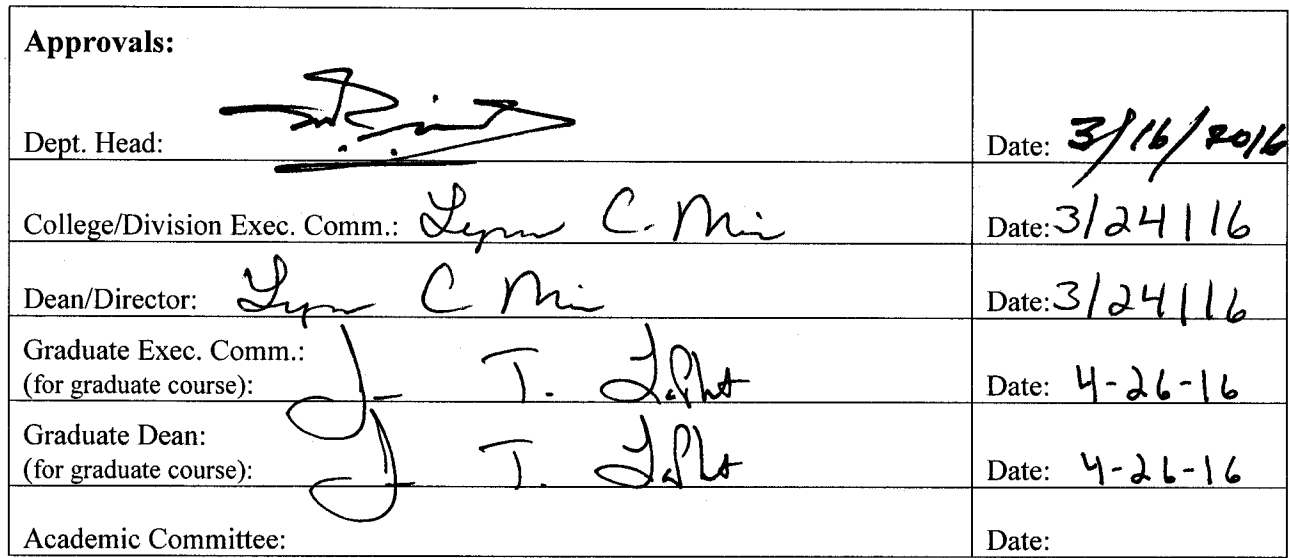 Approvals:
Dept. Head: Date: 3/16/2016
College/Division Exec. Comm.: Lynn C. Date: 3/24/16
Dean/Director: Lynn C Date: 3/24/16
Graduate Exec. Comm.:
(for graduate course): T. Date: 4-26-16
Graduate Dean:
(for graduate course): T. Date: 4-26-16
Academic Committee: Date: